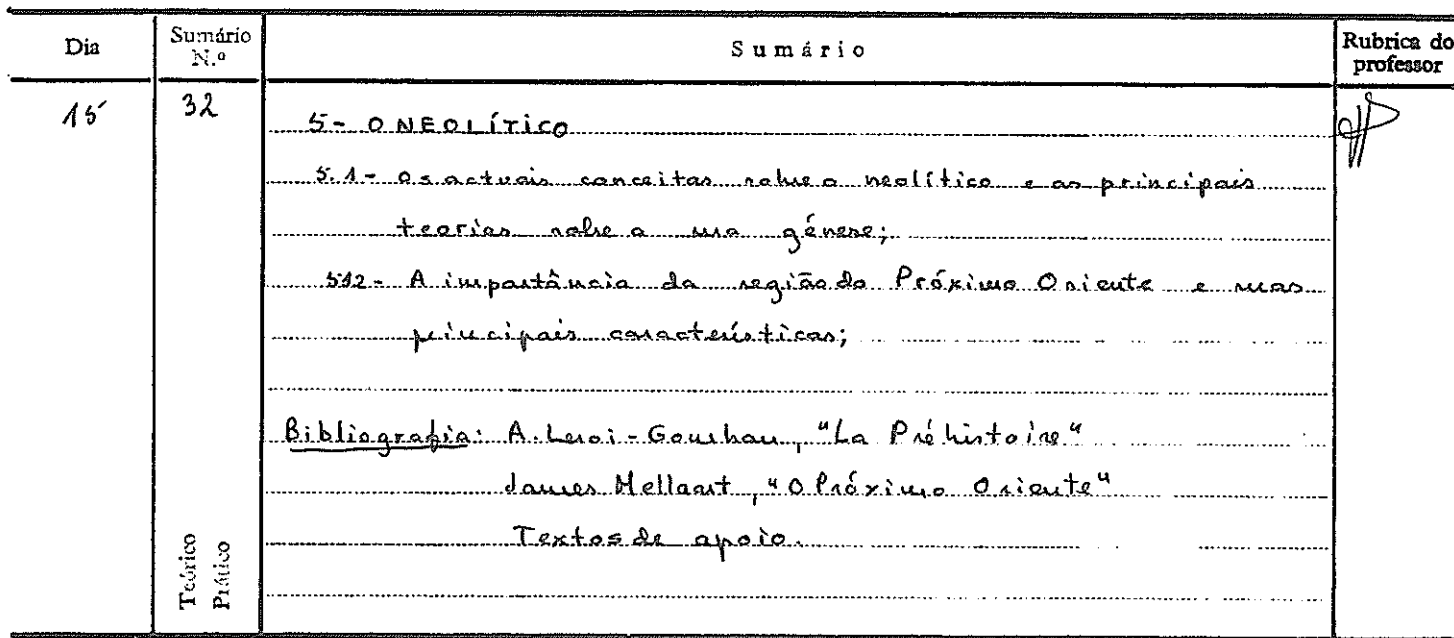 Dia
Sumário
N.º
Sumário
Rubrica do
professor
15
32
5- O NEOLÍTICO
5.1- Os actuais conceitos sobre o neolítico e as principais
teorias sobre a sua génese;
512- A importância da região do Próximo Oriente e suas
principais características;
Bibliografia: A. Leroi-Gourhan, "La Préhistoire"
James Mellaart, "O Próximo Oriente"
Textos de apoio.
Teórico
Prático